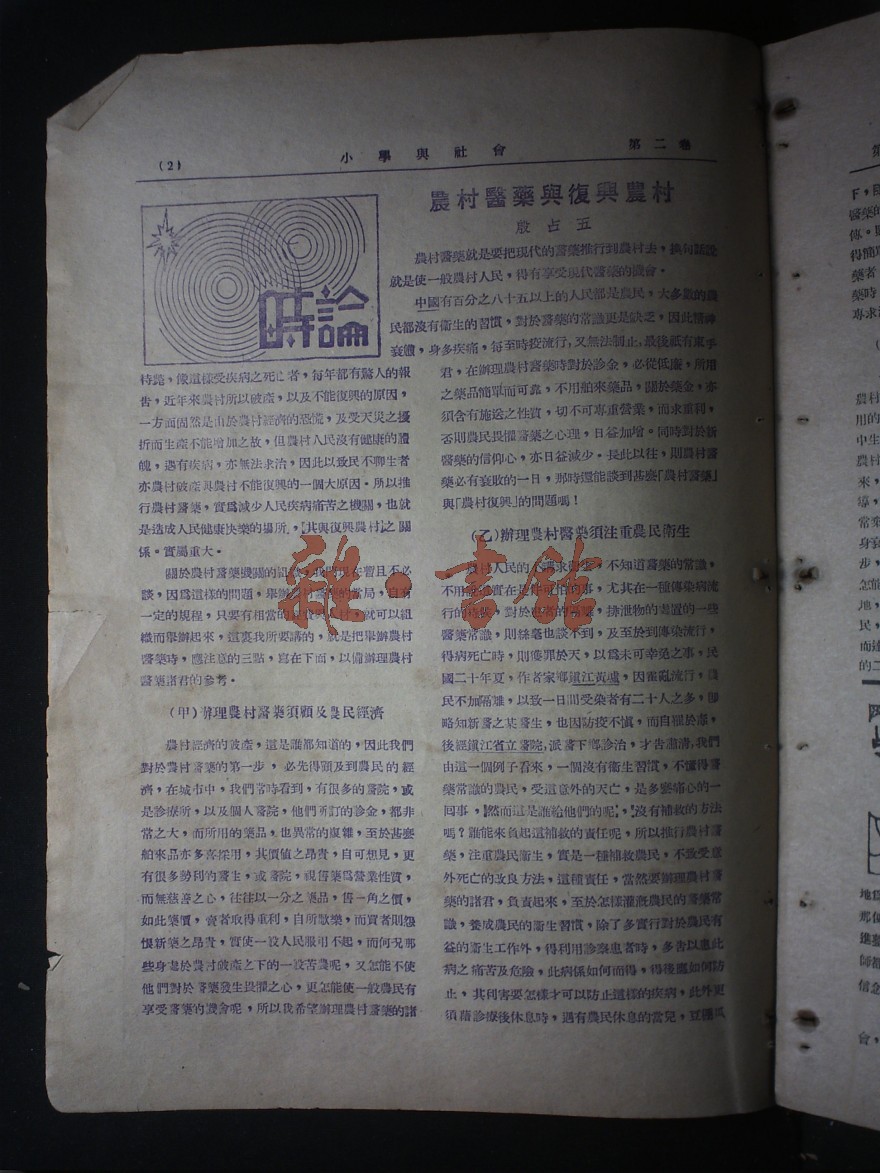 (2)
小學與社會
第二卷
時論
農村醫藥與復興農村
殷占五
農村醫藥就是要把現代的醫藥推行到農村去，換句話說
就是使一般農村人民，得有享受現代醫藥的機會。
中國有百分之八十五以上的人民都是農民，大多數的農
民都沒有衛生的習慣，對於醫藥的常識更是缺乏，因此精神
衰頹，身多疾病，每至時疫流行，又無法制止，最後祇有束手
待斃，像這樣受疾病之死亡者，每年都有驚人的報
告，近年來農村所以破產，以及不能復興的原因，
一方面固然是由於農村經濟的恐慌，及受天災之擾
折而生產不能增加之故，但農村人民沒有健康的體
魄，遇有疾病，亦無法求治，因此以致民不聊生者
亦農村破產與農村不能復興的一個大原因。所以推
行農村醫藥，實為減少人民疾病痛苦之機關，也就
是造成人民健康快樂的場所，「其與復興農村」之關
係。實屬重大。
關於農村醫藥機關的組織，我們現在暫且不必
談，因為這樣的問題，舉辦農村醫藥的當局，自有
一定的規程，只要有相當的，就可以組
織而舉辦起來，這裏我所要講的，就是把舉辦農村
醫藥時，應注意的三點，寫在下面，以備辦理農村
醫藥諸君的參考。
(甲)辦理農村醫藥須顧及農民經濟
農村經濟的破產，這是誰都知道的，因此我們
對於農村醫藥的第一步，必先得顧及到農民的經
濟，在城市中，我們常時看到，有很多的醫院，或
是診療所，以及個人醫院，他們所訂的診金，都非
常之大，而所用的藥品，也異常的複雜，至於甚麼
舶來品亦多喜採用，其價值之昂貴，自可想見，更
有很多勢利的醫生，或醫院，視售藥為營業性質，
而無慈善之心，往往以一分之藥品，售一角之價，
如此藥價，賣者取得重利，自所歡樂，而買者則怨
恨新藥之昂貴，實使一般人民服用不起，而何況那
些身處於農村破產之下的一般苦農呢，又怎能不使
他們對於醫藥發生畏懼之心，更怎能使一般農民有
享受醫藥的機會呢，所以我希望辦理農村醫藥的諸
君，在辦理農村醫藥時對於診金，必從低廉，所用
之藥品簡單而可靠，不用舶來藥品，關於藥金，亦
須含有施送之性質，切不可專重營業，而求重利，
否則農民畏懼醫藥之心理，日益加增。同時對於新
醫藥的信仰心，亦日益減少。長此以往，則農村醫
藥必有衰敗的一日，那時還能談到甚麼「農村醫藥」
與「農村復興」的問題嗎！
(乙)辦理農村醫藥須注重農民衛生
農村人民的不講求衛生，不知道醫藥的常識，
不用說實在是件可怕的事，尤其在一種傳染病流
行的時候，對於患者的隔離，排泄物的處置的一些
醫藥常識，則絲毫也談不到，及至於到傳染流行，
得病死亡時，則獲罪於天，以為未可幸免之事，民
國二十年夏，作者家鄉鎮江黃墟，因霍亂流行，農
民不加隔離，以致一日間受染者有二十人之多，即
略知新醫之某醫生，也因防疫不慎，而自罹於毒，
後經鎮江省立醫院，派醫下鄉診治，才告肅清，我們
由這一個例子看來，一個沒有衛生習慣，不懂得醫
藥常識的農民，受這意外的夭亡，是多麼痛心的一
回事，「然而這是誰給他們的呢」，「沒有補救的方法
嗎？誰能來負起這補救的責任呢，所以推行農村醫
藥，注重農民衛生，實是一種補救農民，不致受意
外死亡的改良方法，這種責任，當然要辦理農村醫
藥的諸君，負責起來，至於怎樣灌溉農民的醫藥常
識，養成農民的衛生習慣，除了多實行對於農民有
益的衛生工作外，得利用診察患者時，多告以患此
病之痛苦及危險，此病係如何而得，得後應如何防
止，其利害要怎樣才可以防止這樣的疾病，此外更
須藉診療後休息時，遇有農民休息的當兒，豆棚瓜